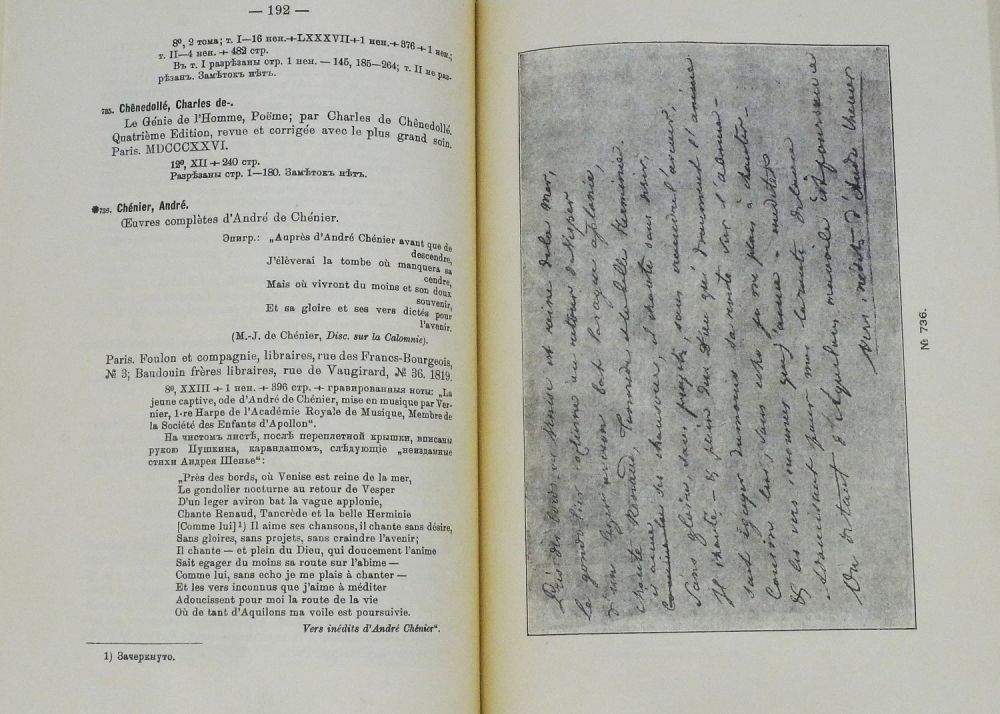 — 192 —
8⁰, 2 тома; т. I—16 нен.+LXXXVII+1 нен.+376+1 нен.;
т. II—4 нен. + 482 стр.
Въ т. I разрѣзаны стр. 1 нен. — 145, 185—264; т. II не раз-
рѣзанъ. Замѣтокъ нѣтъ.
735. Chênedollé, Charles de-.
Le Génie de l'Homme, Poëme; par Charles de Chênedollé.
Quatrième Edition, revue et corrigée avec le plus grand soin.
Paris. MDCCCXXVI.
12⁰, XII + 240 стр.
Разрѣзаны стр. 1—180. Замѣтокъ нѣтъ.
*736. Chénier, André.
Œuvres complètes d'André de Chénier.
Эпигр.: „Auprès d'André Chénier avant que de
descendre,
J'élèverai la tombe où manquera sa
cendre,
Mais où vivront du moins et son doux
souvenir,
Et sa gloire et ses vers dictés pour
l'avenir.
(M.-J. de Chénier, Disc. sur la Calomnie).
Paris. Foulon et compagnie, libraires, rue des Francs-Bourgeois,
№ 3; Baudouin frères libraires, rue de Vaugirard, № 36. 1819.
8⁰, XXIII + 1 нен. + 396 стр. + гравированныя ноты: „La
jeune captive, ode d'André de Chénier, mise en musique par Ver-
nier, 1-re Harpe de l'Académie Royale de Musique, Membre de
la Société des Enfants d'Apollon“.
На чистомъ листѣ, послѣ переплетной крышки, вписаны
рукою Пушкина, карандашомъ, слѣдующіе „неизданные
стихи Андрея Шенье“:
„Près des bords, où Venise est reine de la mer,
Le gondolier nocturne au retour de Vesper
D'un leger aviron bat la vague applonie,
Chante Renaud, Tancrède et la belle Herminie
[Comme lui]¹) Il aime ses chansons, il chante sans désire,
Sans gloires, sans projets, sans craindre l'avenir;
Il chante — et plein du Dieu, qui doucement l'anime
Sait egager du moins sa route sur l'abime —
Comme lui, sans echo je me plais à chanter —
Et les vers inconnus que j'aime à méditer
Adoucissent pour moi la route de la vie
Où de tant d'Aquilons ma voile est poursuivie.
Vers inédits d'André Chénier“.
1) Зачеркнуто.
Près des bords où Venise est reine de la mer,
Le gondolier nocturne au retour de Vesper
D'un leger aviron bat la vague aplanie,
Chante Renaud, Tancrède et la belle Herminie.
Il aime ses chansons, il chante sans desir,
Sans gloire, sans projets, sans craindre l'avenir,
Il chante — et plein du Dieu qui doucement l'anime
Sait égayer du moins sa route sur l'abime —
Comme lui, sans echo je me plais à chanter —
Et les vers inconnus que j'aime à méditer
Adoucissent pour moi la route de la vie
Où de tant d'Aquilons ma voile est poursuivie
Vers inédits d'André Chénier
№ 736.